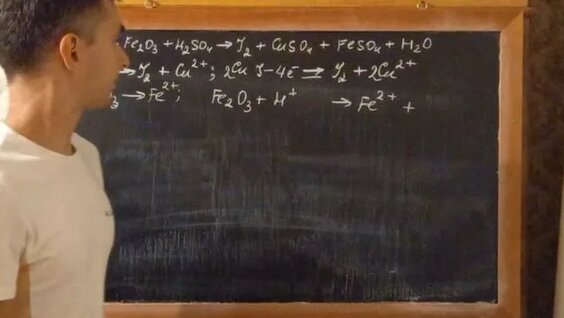 Fe₂O₃ + H₂SO₄ → J₂ + CuSO₄ + FeSO₄ + H₂O
→ J₂ + Cu²⁺; 2CuJ - 4ē ⇌ J₂ + 2Cu²⁺
₃ → Fe²⁺; Fe₂O₃ + H⁺ → Fe²⁺ +